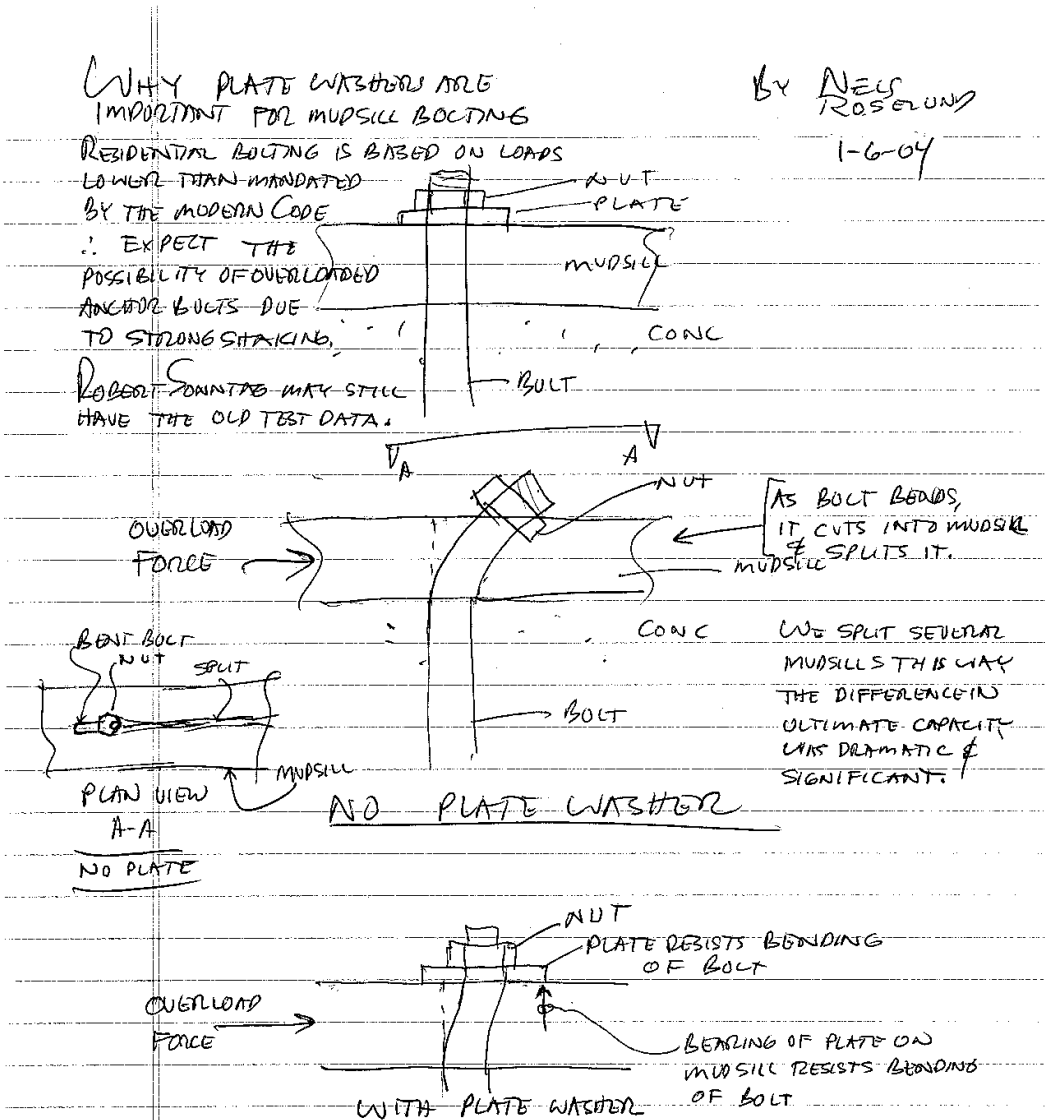 WHY PLATE WASHERS ARE
IMPORTANT FOR MUDSILL BOLTING
BY NELS
ROSELUND
1-6-04
RESIDENTIAL BOLTING IS BASED ON LOADS
LOWER THAN MANDATED
BY THE MODERN CODE
∴ EXPECT THE
POSSIBILITY OF OVERLOADED
ANCHOR BOLTS DUE
TO STRONG SHAKING.
ROBERT SONNTAG MAY STILL
HAVE THE OLD TEST DATA.
NUT
PLATE
MUDSILL
CONC
BOLT
A
A
NUT
OVERLOAD
FORCE
AS BOLT BENDS,
IT CUTS INTO MUDSILL
& SPLITS IT.
MUDSILL
CONC
BOLT
WE SPLIT SEVERAL
MUDSILLS THIS WAY
THE DIFFERENCE IN
ULTIMATE CAPACITY
WAS DRAMATIC &
SIGNIFICANT.
BENT BOLT
NUT
SPLIT
MUDSILL
PLAN VIEW
A-A
NO PLATE
NO PLATE WASHER
NUT
PLATE RESISTS BENDING
OF BOLT
OVERLOAD
FORCE
BEARING OF PLATE ON
MUDSILL RESISTS BENDING
OF BOLT
WITH PLATE WASHER